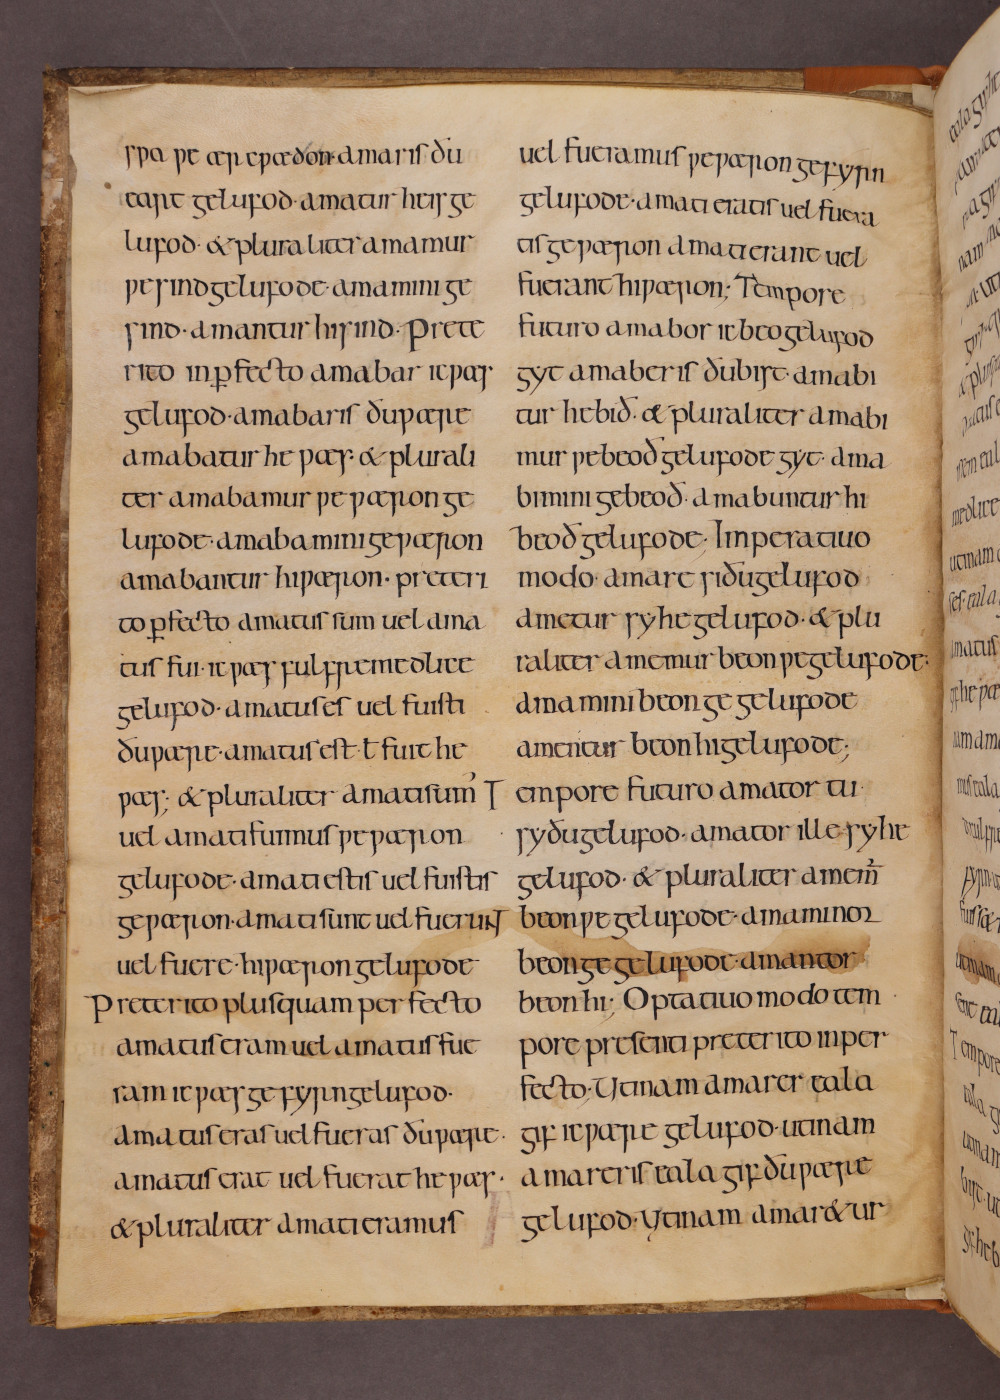 sƿa ƿe ær cƿædon· amaris ðu
eart gelufod· amatur heis ge
lufod· & pluraliter amamur
ƿesind gelufode· amamini ge
sind· amantur hisind· Prete
rito inꝑfecto amabar icƿæs
gelufod· amabaris ðuƿære
amabatur he ƿæs· & plurali
ter amabamur ƿe ƿæron ge
lufode· amabamini geƿæron
amabantur hiƿæron· preteri
to ꝑfecto amatus sum uel ama
tus fui· icƿæs fulfremedlice
gelufod· amatus es uel fuisti
ðuƿære· amatus est· ł fuit he
ƿæs; & pluraliter amati sum̅ᵓ
uel amati fuimus ƿe ƿæron
gelufode· amati estis uel fuistis
geƿæron· amati sunt uel fuerunt
uel fuere· hiƿæron gelufode
Preterito plusquam perfecto
amatus eram uel amatus fue
ram ic ƿæs gefyrn gelufod·
amatus eras uel fueras ðuƿære·
amatus erat uel fuerat he ƿæs·
& pluraliter amati eramus
uel fueramus ƿeƿæron gefyrn
gelufode· amati eratis uel fuera
tis geƿæron amati erant uel
fuerant hiƿæron; Tempore
futuro amabor ic beo gelufod
gyt amaberis ðu bist· amabi
tur he bið· & pluraliter amabi
mur ƿe beoð gelufode gyt· ama
bimini ge beoð· amabuntur hi
beoð gelufode· Inperatiuo
modo· amare si ðu gelufod
ametur sy he gelufod· & plu
raliter amemur beon ƿe gelufode·
amamini beon ge gelufode
amentur beon hi gelufode;
Tempore futuro amator tu
sy ðu gelufod· amator ille sy he
gelufod· & pluraliter amem̅ᵓ
beon ƿe gelufode· amaminor
beon ge gelufode· amantor
beon hi; Optatiuo modo tem
pore presenti preterito inper
fecto; Utinam amarer eala
gif ic ƿære gelufod· utinam
amareris eala gif ðu ƿære
gelufod· Utinam amar&ur